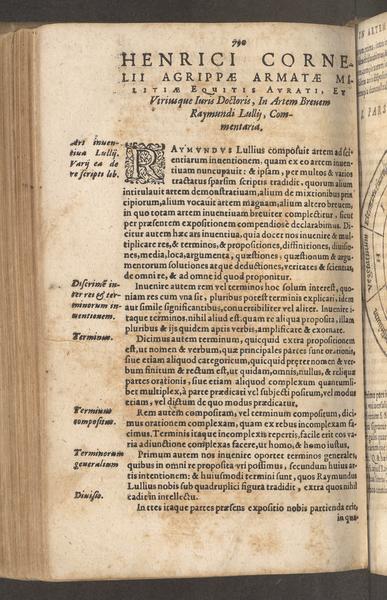 790
HENRICI CORNE-
LII AGRIPPÆ ARMATÆ MI-
LITIÆ EQUITIS AVRATI, ET
Vtriusque Iuris Doctoris, In Artem Breuem
Raymundi Lullij, Com-
mentaria.
Ars inuen-
tiua Lullij.
Varij ea de
re scripti lib.
RAYMVNDVS Lullius composuit artem ad sci-
entiarum inuentionem, quam ex eo artem inuen-
tiuam nuncupauit: & ipsam, per multos & varios
tractatus sparsim scriptis tradidit, quorum alium
intitulauit artem demonstratiuam, alium de mixtionibus prin
cipiorum, alium vocauit artem magnam, alium altero breuem,
in quo totam artem inuentiuam breuiter complectitur, sicut
per præsentem expositionem compendiose declarabimus. Di-
citur autem hæc ars inuentiua, quia docet nos inuenire & mul-
tiplicare res, & terminos, & propositiones, diffinitiones, diuisio-
nes, media, loca, argumenta, quæstiones, quæstionum & argu-
mentorum solutiones atque deductiones, veritates & scientias,
de omni re, & ad omne id quod proponitur.
Discrimē in-
ter res & ter-
minorum in-
uentionem.
Inuenire autem rem vel terminos hoc solum interest, quo-
niam res cum vna sit, pluribus potest terminis explicari, idem
aut simile significantibus, conuertibiliter vel aliter. Inuenire i-
taque terminos, nihil aliud est quam re aliqua proposita, illam
pluribus & ijs quidem aptis verbis, amplificare & exornare.
Terminus.
Dicimus autem terminum, quicquid extra propositionem
est, ut nomen & verbum, quæ principales partes sunt orationis,
siue etiam aliquod categoricum, quicquid præter nomen & ver-
bum finitum & rectum est, ut quidam, omnis, nullus, & reliquæ
partes orationis, siue etiam aliquod complexum quantumli-
bet multiplex, à parte prædicati vel subiecti positum, vel modus
etiam, vel dictum de quo modus prædicatur.
Terminus
compositus.
Rem autem compositam, vel terminum compositum, dici-
mus orationem complexam, quam ex rebus incomplexam fa-
cimus. Terminis itaque incomplexis repertis, facile erit eos va-
ria adiunctione complexos facere, ut homo, & homo iustus.
Terminorum
generalium
Primum autem nos inuenire oportet terminos generales,
quibus in omni re proposita vti possimus, secundum huius ar-
tis intentionem: & huiusmodi termini sunt, quos Raymundus
Lullius nobis sub quadruplici figura tradidit, extra quos nihil
cadit in intellectu.
Diuisio.
In tres itaque partes præsens expositio nobis partienda erit,
in qua-